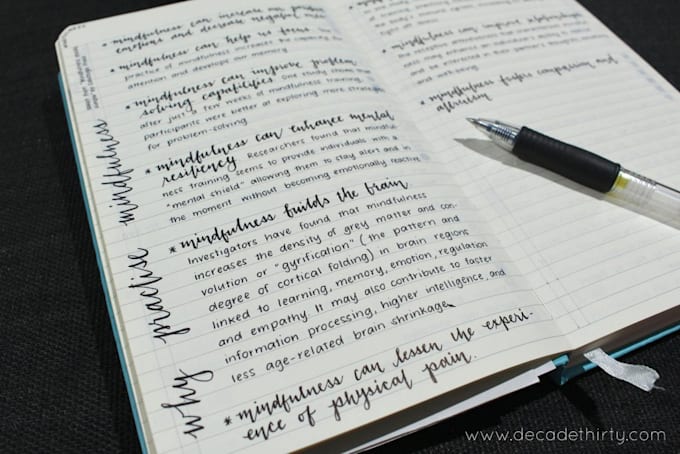 why practise mindfulness
* mindfulness can increase our positive
emotions and decrease negative
* mindfulness can help us focus. The
practice of mindfulness increases the capacity for
attention and develops our memory.
* mindfulness can improve problem
solving capabilities. One study shows that
after just a few weeks of mindfulness training,
participants were better at exploring more strategies
for problem-solving.
* mindfulness can enhance mental
resiliency. Researchers found that mindful-
ness training seems to provide individuals with a
"mental shield" allowing them to stay alert and in
the moment without becoming emotionally reactive.
* mindfulness builds the brain
Investigators have found that mindfulness
increases the density of grey matter and con-
volution or "gyrification" (the pattern and
degree of cortical folding) in brain regions
linked to learning, memory, emotion, regulation
and empathy. It may also contribute to faster
information processing, higher intelligence, and
less age-related brain shrinkage.
* mindfulness can lessen the experi-
ence of physical pain.
* mindfulness can improve relationships
and well-being.
* mindfulness fosters compassion and
altruism
www.decadethirty.com